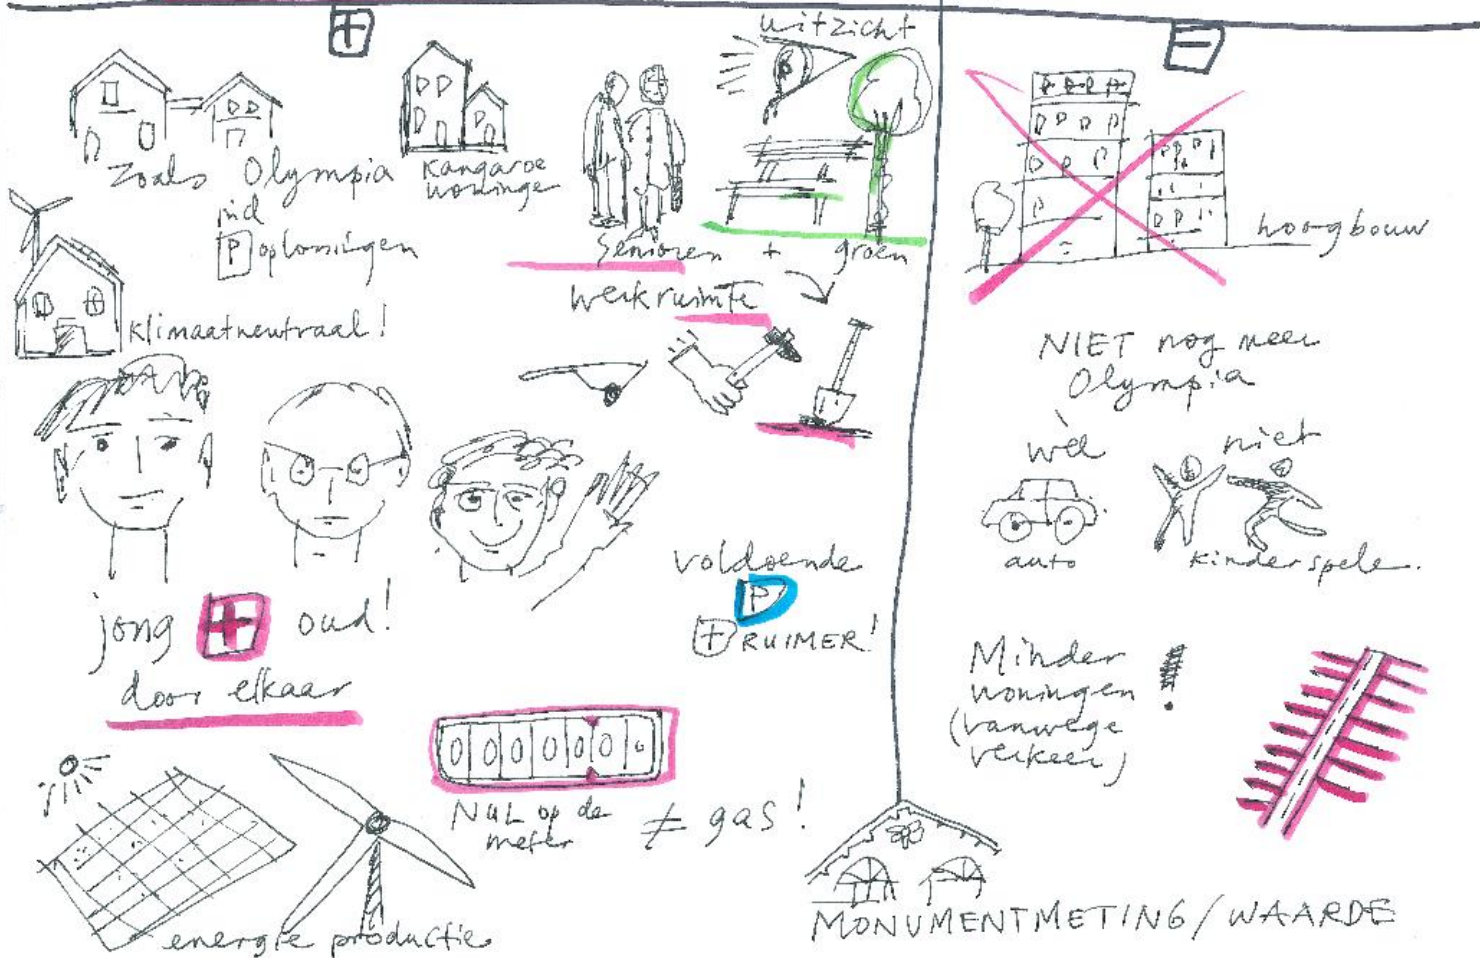 +
zoals Olympia
incl
P oplossingen
Kangaroe
woninge
uitzicht
senioren + groen
werkruimte
klimaatneutraal!
jong + oud!
door elkaar
voldoende
P
+ RUIMER!
0 0 0 0 0 0 0
NUL op de
meter
≠ gas!
energie productie
-
hoogbouw
NIET nog meer
Olympia
wèl
auto
niet
kinderspele.
Minder
woningen
(vanwege
verkeer)
!
MONUMENTMETING/WAARDE